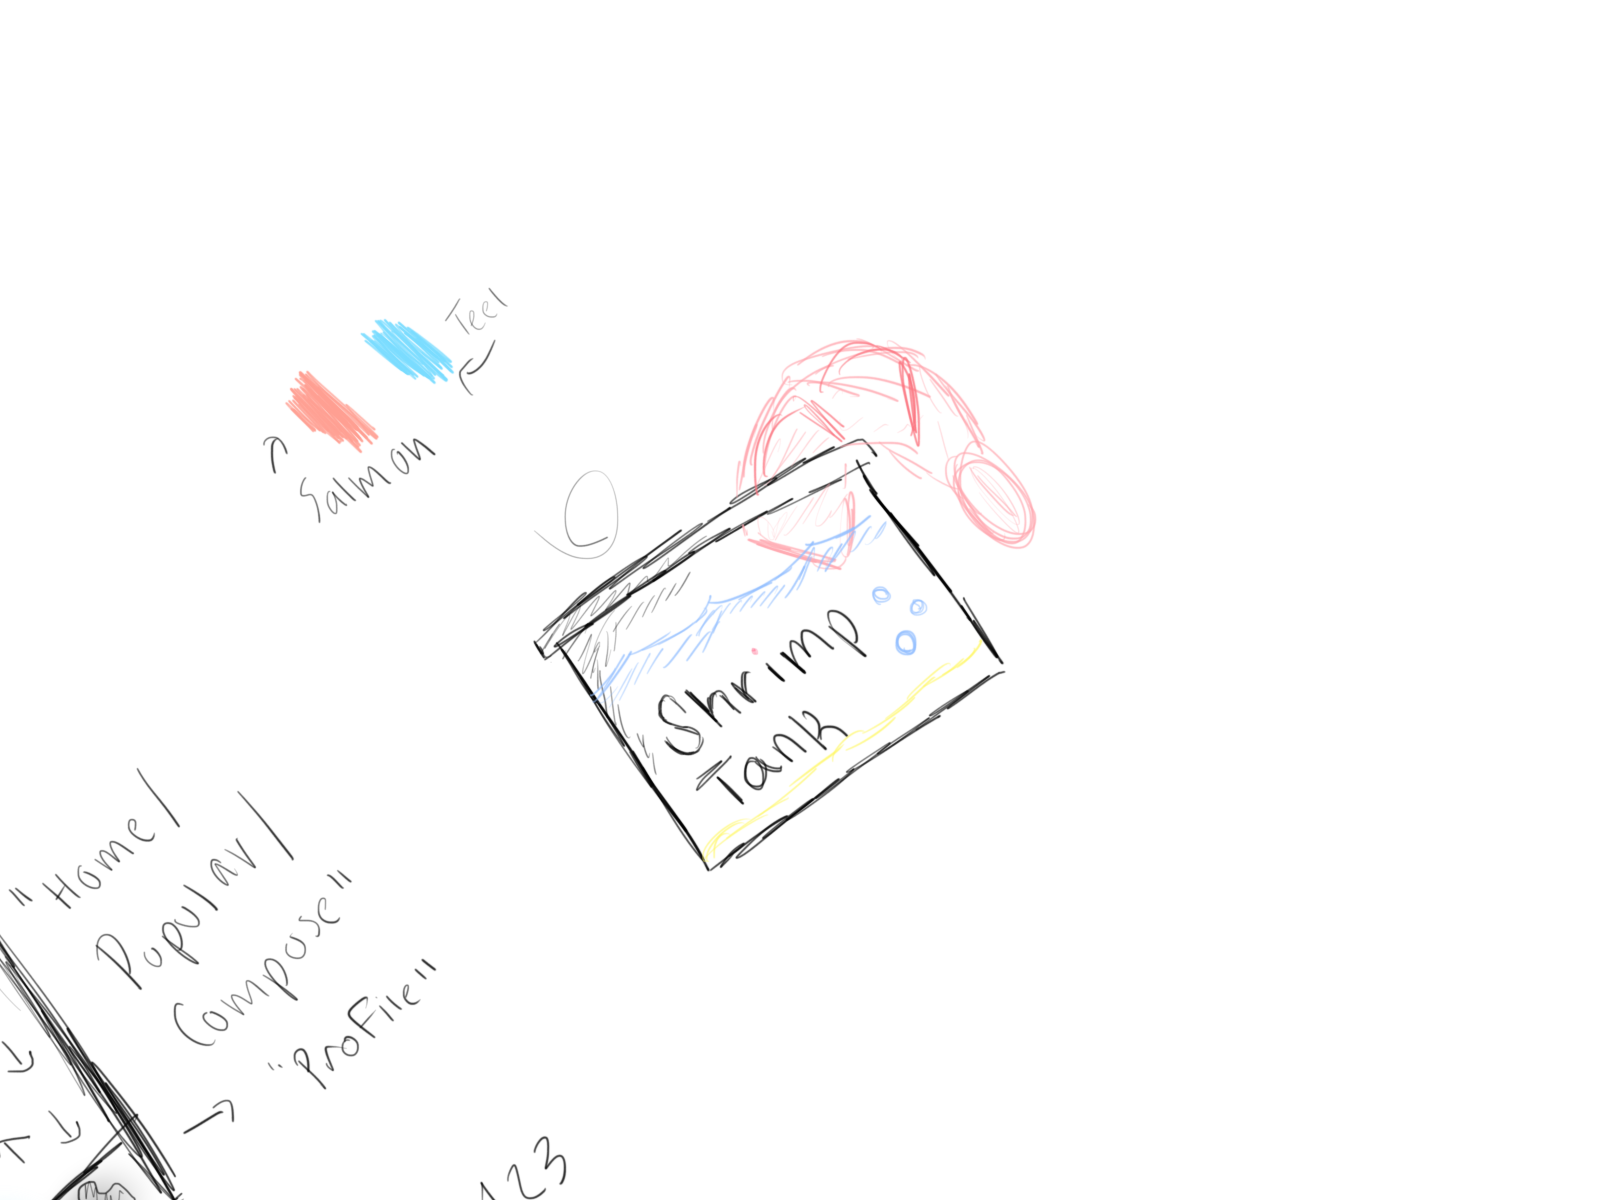 Teel
Salmon
Shrimp
Tank
"Home/
Popular/
Compose"
"Profile"
123